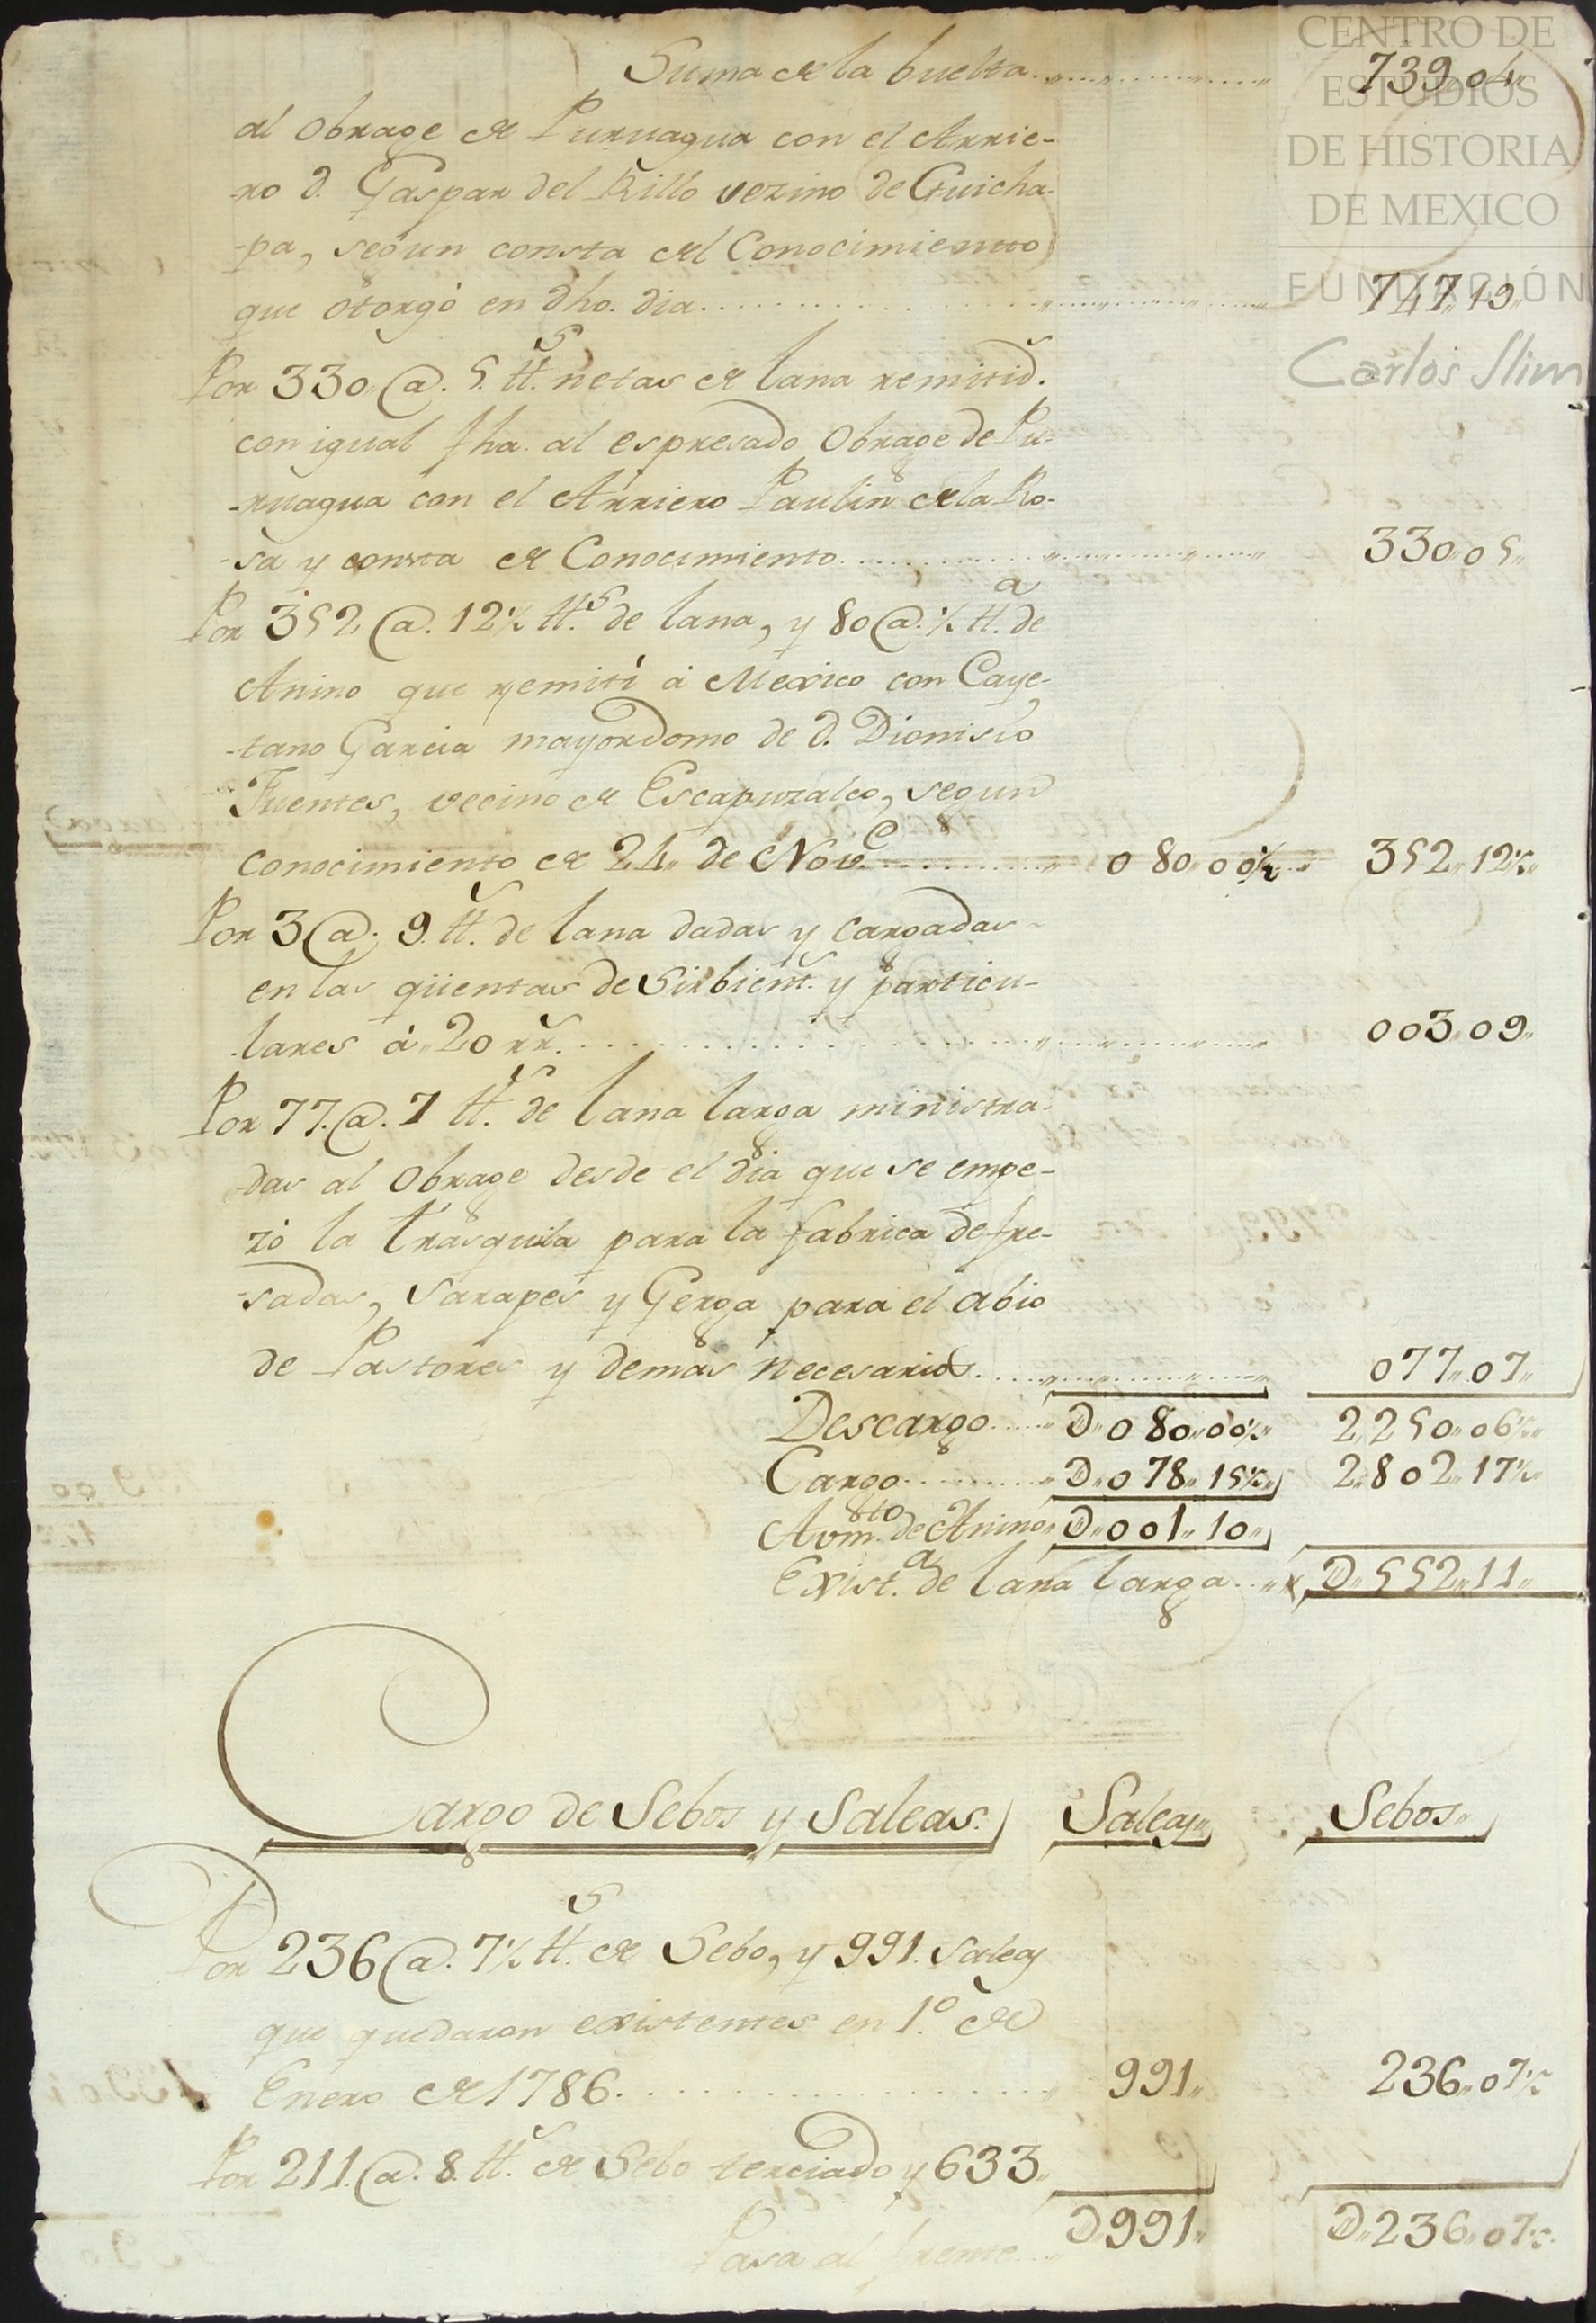 CENTRO DE
ESTUDIOS
DE HISTORIA
DE MEXICO
FUNDACIÓN
Carlos Slim
Suma de la buelta 739,,04,,
al Obrage de Puruagua con el Arrie-
-ro d. Gaspar del Rillo vezino de Guicha-
-pa, segun consta del Conocimiento
que otorgó en dho. dia 747,,19,,
Por 330,, @. 5. tt.s netas de lana remitid.s
con igual fha. al espresado Obrage de Pu-
-ruagua con el Arriero Paulin de la Ro-
-sa y consta de Conocimiento 330,,05,,
Por 352 @. 12½ tt.s de lana, y 80 @. ½ tt.a de
Anino que remití á Mexico con Caye-
-tano Garcia mayordomo de d. Dionisio
Fuentes, vecino de Escapuzalco, segun
conocimiento de 24,, de Nov.e 080,,00½,, 352,,12½,,
Por 3 @. 9. tt.s de lana dadas y cargadas
en las qüentas de Sirbient.s y particu-
lares á,, 20 rr.s 003,,09,,
Por 77. @. 7 tt.s de lana larga ministra-
-das al Obrage desde el dia que se empe-
zó la trasquila para la fabrica de fre-
-sadas, Sarapes y Gerga para el abio
de Pastores y demas necesarios 077,,07,,
Descargo D,,080,,00½,, 2,,250,,06½,,
Cargo D,,078,,15½,, 2,,802,,17½,,
Aum.to de Anino,, D,,001,,10,,
Exist.a de lana larga D,,552,,11,,
Cargo de Sebos y Saleas. Saleas,, Sebos,,
Por 236 @. 7½ tt.s de Sebo, y 991. Saleas
que quedaron existentes en 1.º de
Enero de 1786 991,, 236,,07½
Por 211. @. 8. tt.s de Sebo terciado y 633,,
Pasa al frente D,,991,, D,,236,,07½